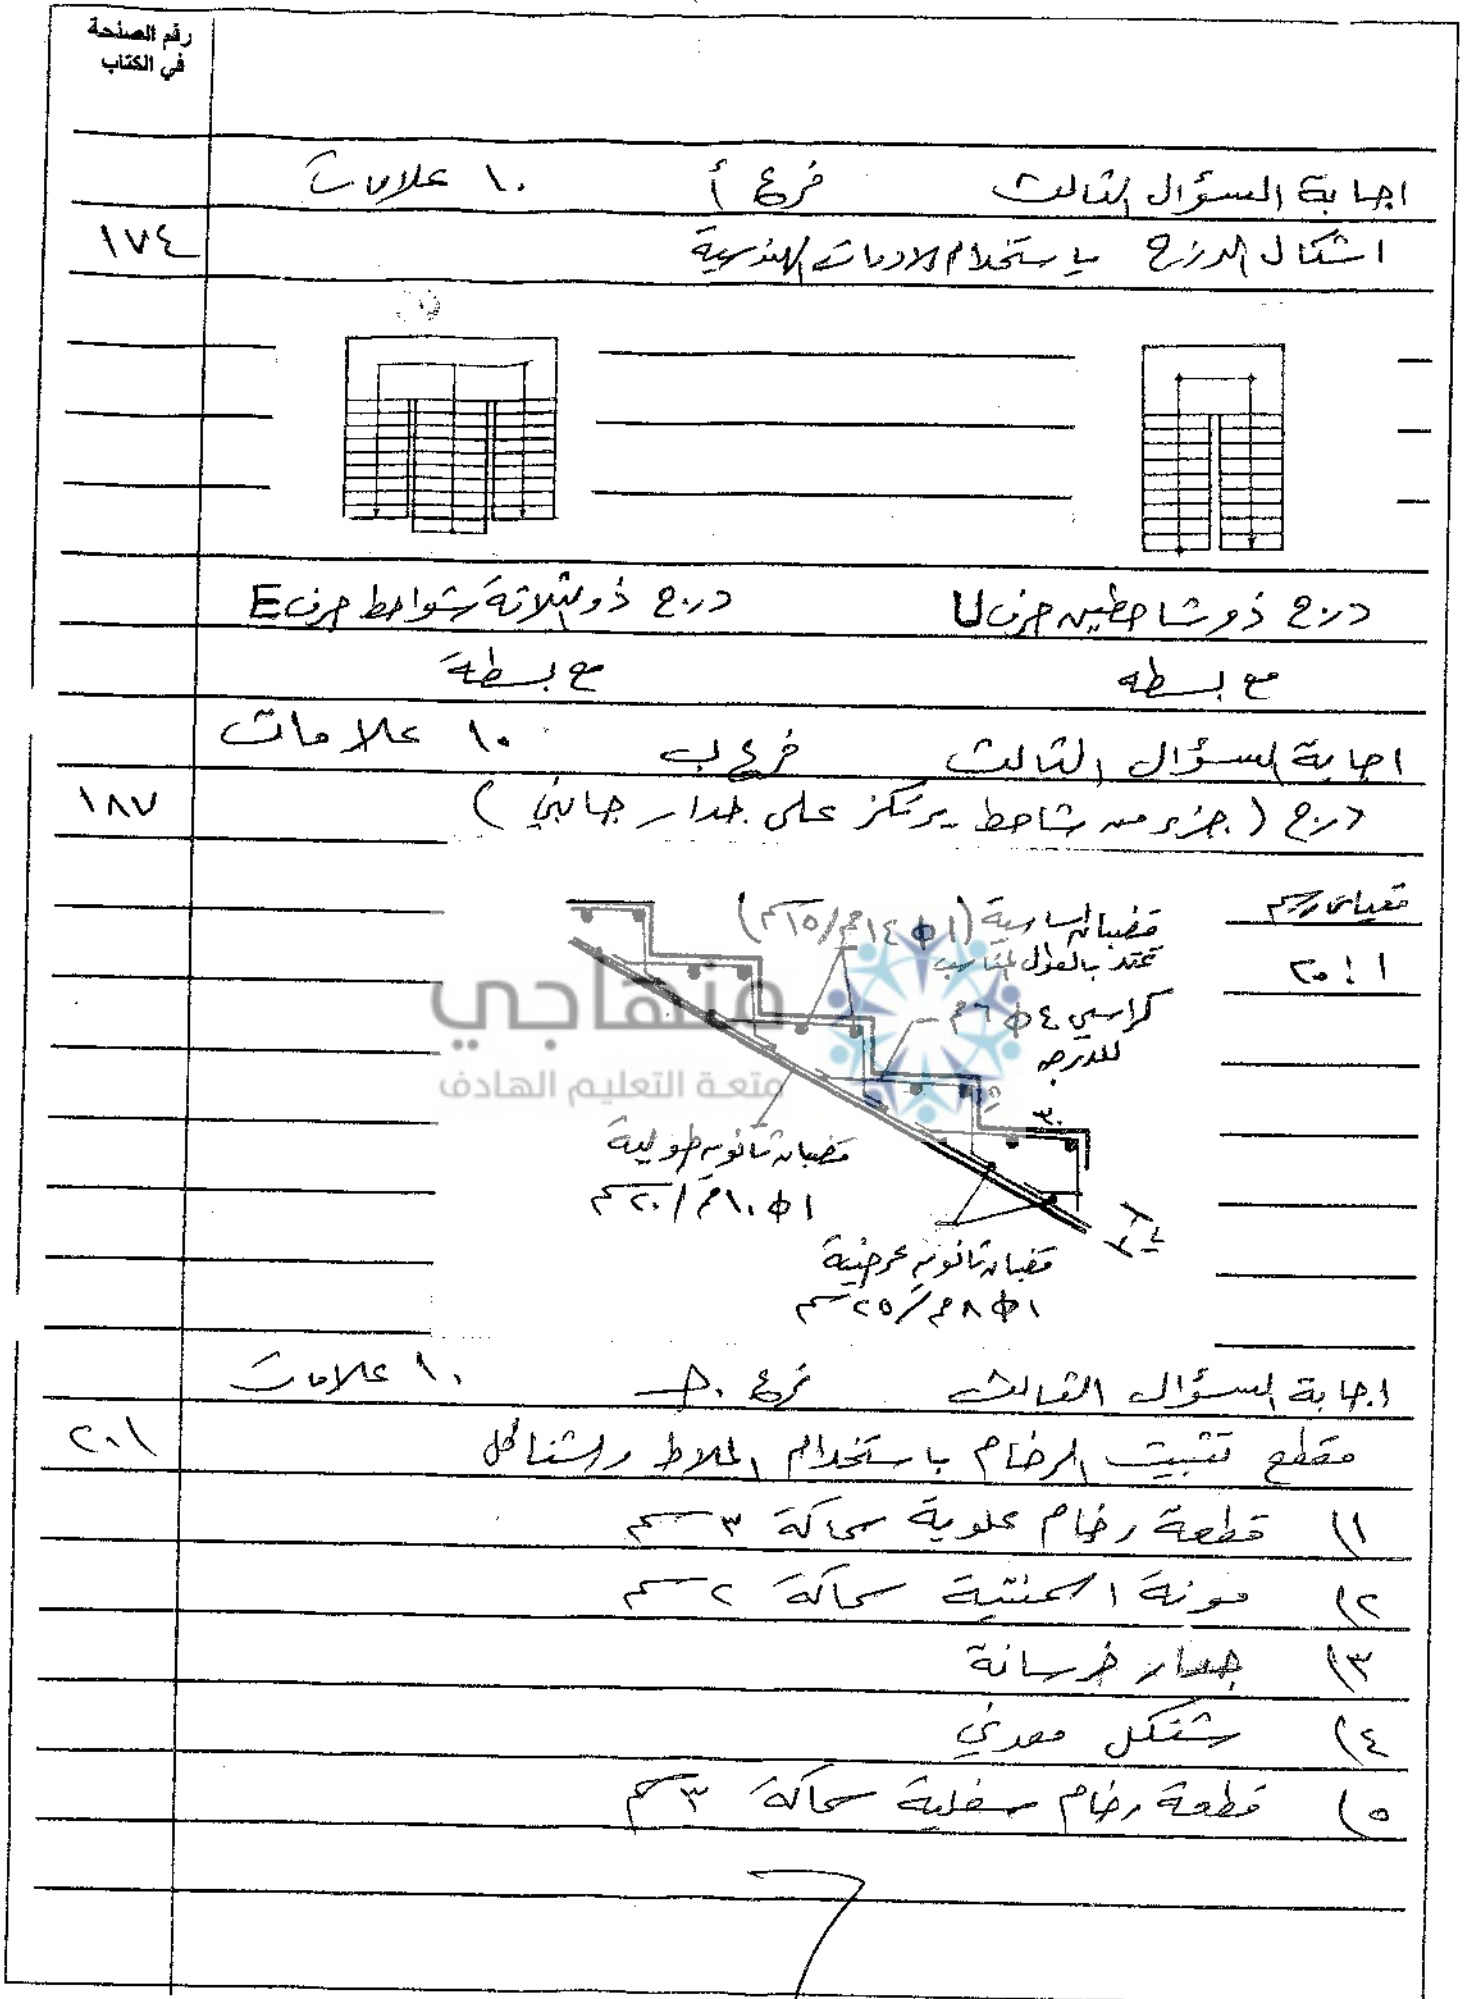 رقم الصفحة
في الكتاب
اجابة السؤال الثالث فرع أ ١٠ علامات
اشكال الدرج باستخدام الادوات الهندسية ١٧٤
درج ذو شاحطين حرف U درج ذو ثلاثة شواحط حرف E
مع بسطه مع بسطة
اجابة السؤال الثالث فرع ب ١٠ علامات
درج (جزء من شاحط يرتكز على جدار جانبي) ١٨٧
مقياس رسم
١:٢٠
قضبان اساسية (١ɸ١٤مم/١٥سم)
تمتد بالطول المناسب
كراسي ٤ɸ٦مم
للدرجه
منهاجي
متعة التعليم الهادف
٣٠
قضبان ثانوية طولية
١ɸ١٠مم/٢٠سم
قضبان ثانوية عرضية
١ɸ٨مم/٢٥سم
اجابة السؤال الثالث فرع جـ ١٠ علامات
مقطع تثبيت الرخام باستخدام الملاط والشناكل ٢٠١
١) قطعة رخام علوية سماكة ٣ سم
٢) مونة اسمنتية سماكة ٢ سم
٣) جدار خرسانة
٤) شنكل معدني
٥) قطعة رخام سفلية سماكة ٣ سم